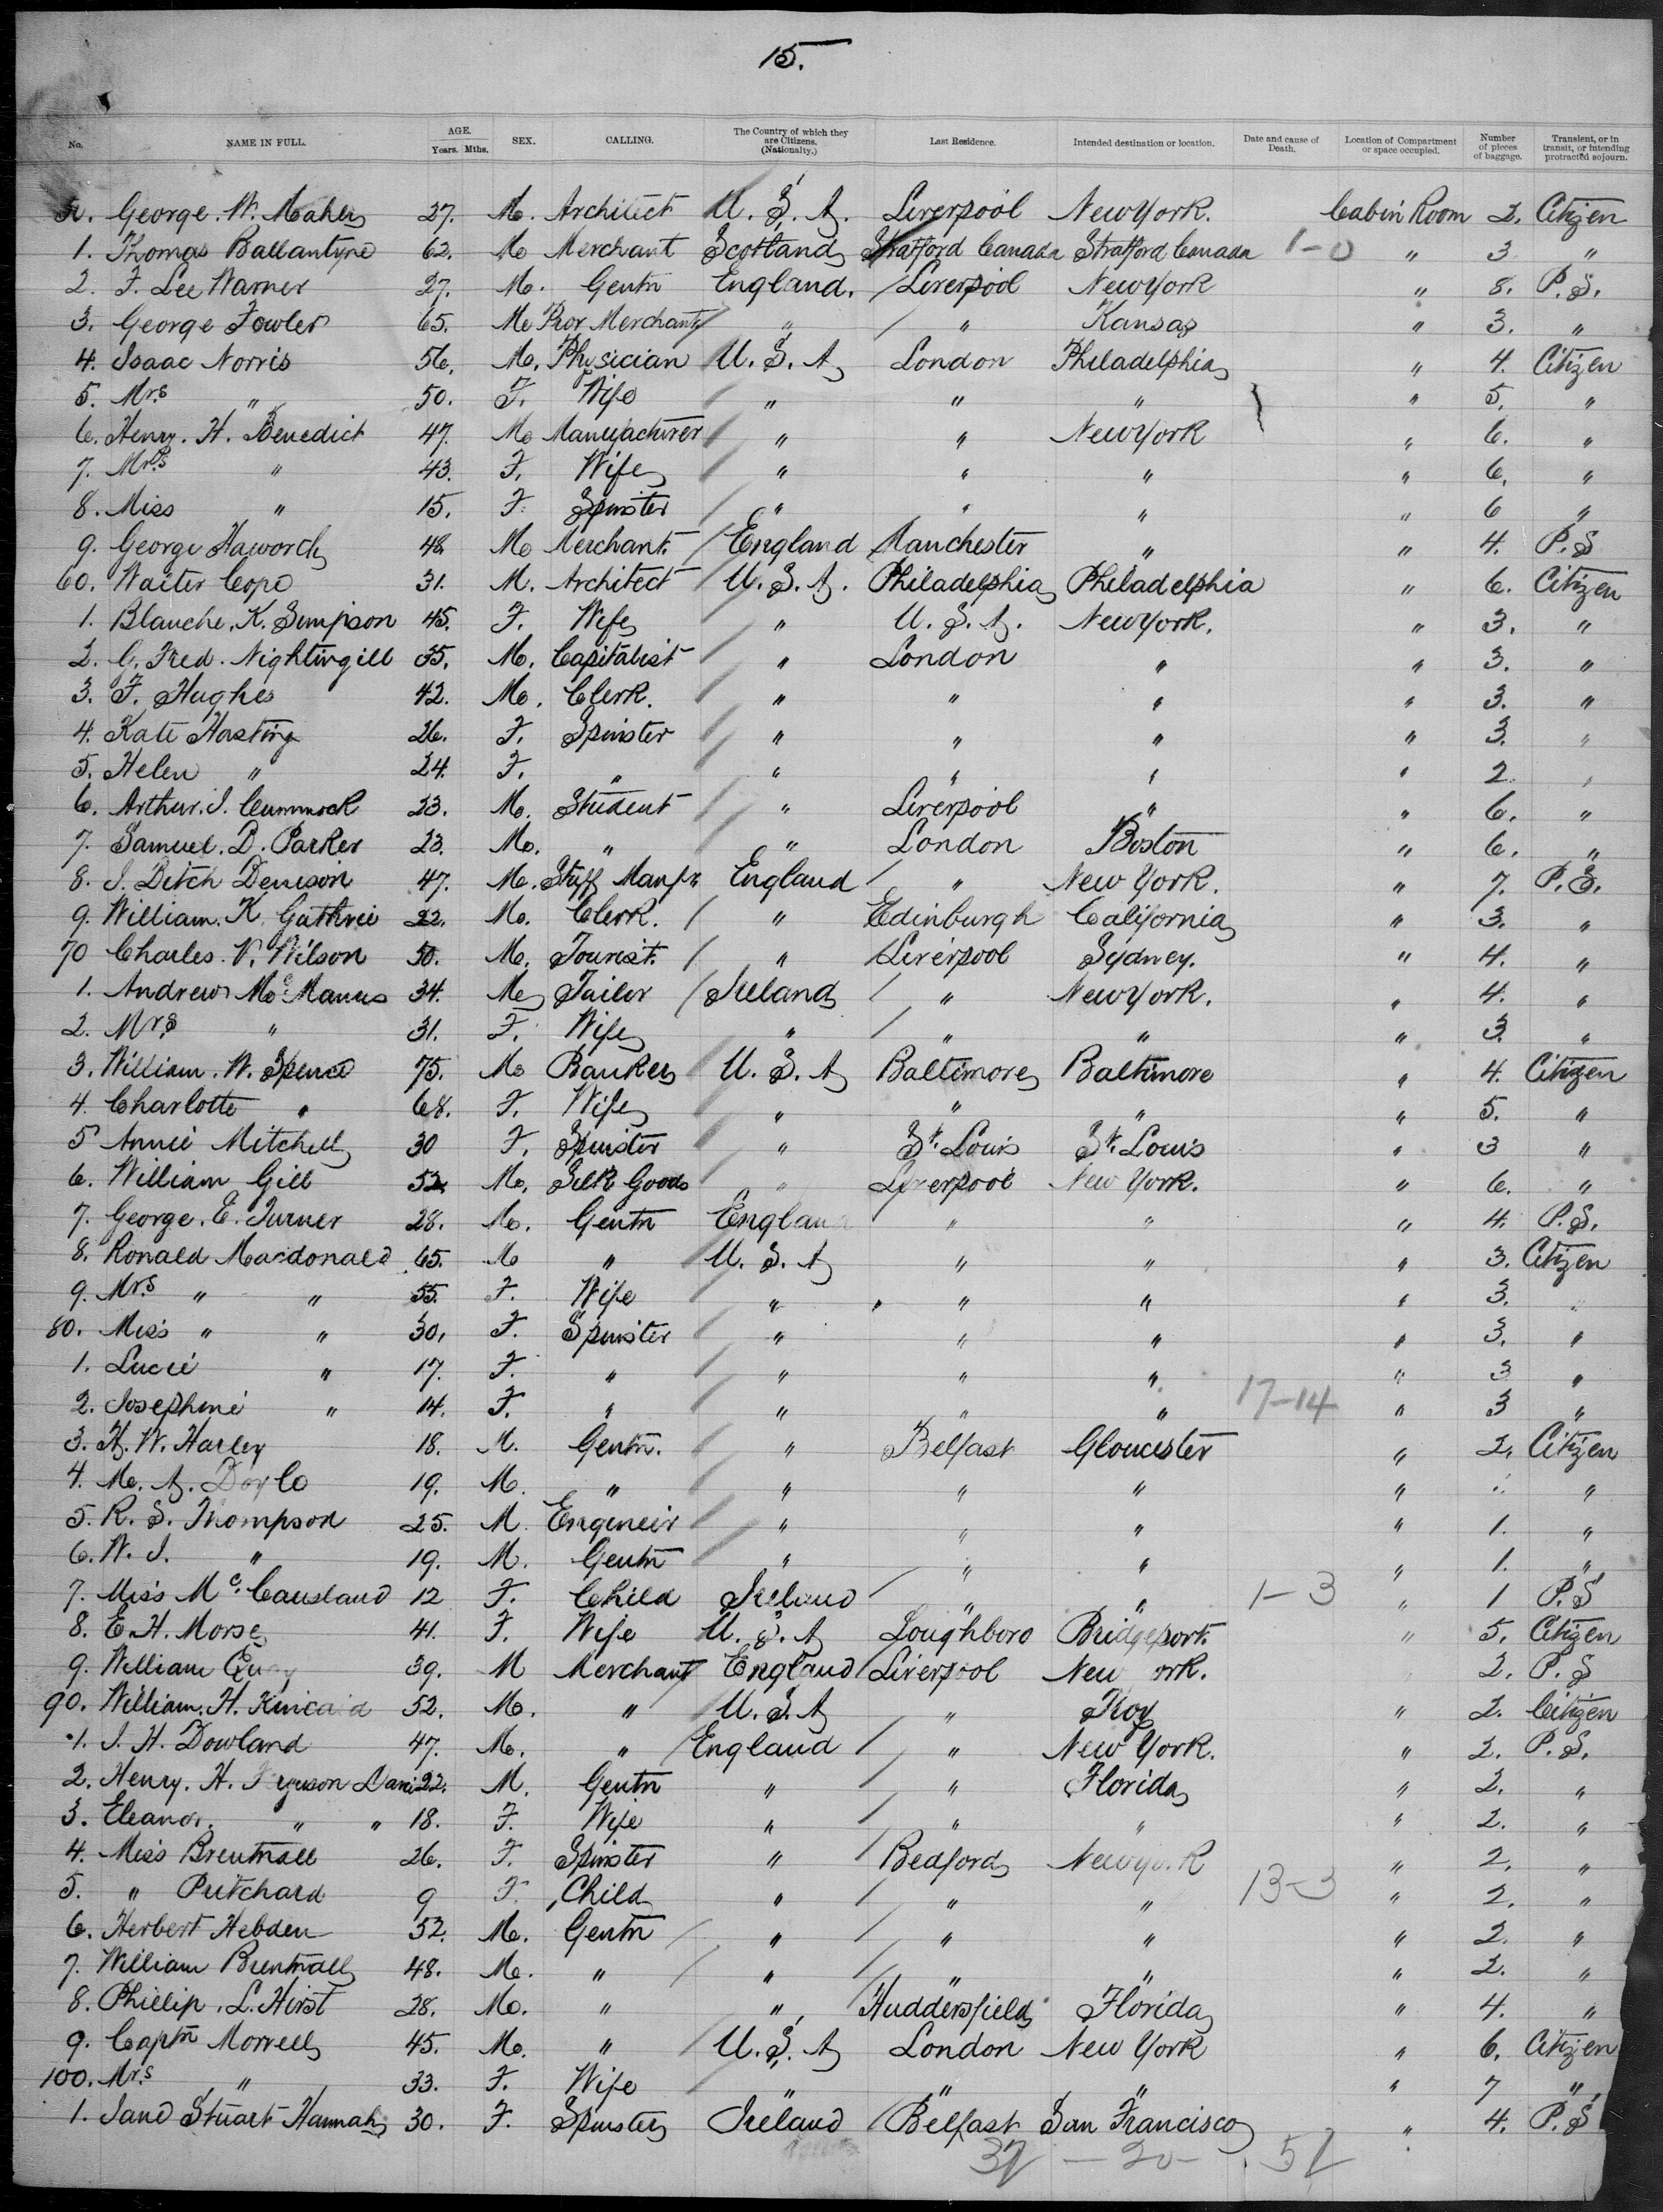 15.
No. NAME IN FULL. AGE. Years. Mths. SEX. CALLING. The Country of which they are Citizens. (Nationalty.) Last Residence. Intended destination or location. Date and cause of Death. Location of Compartment or space occupied. Number of pieces of baggage. Transient, or in transit, or intending protracted sojourn.
George. W. Maher 27. M. Architect U. S. A. Liverpool New York. Cabin Room 2. Citizen
1. Thomas Ballantyne 62. M Merchant Scotland Stratford Canada Stratford Canada 1-0 " 3 "
2. F. Lee Warner 27. M. Gentn England. Liverpool New York " 8. P. S.
3. George Fowler 65. M Merchant " " Kansas " 3. "
4. Isaac Norris 56. M. Physician U. S. A London Philadelphia " 4. Citizen
5. Mrs " 50. F. Wife " " " " 5. "
6. Henry. H. Benedict 47. M Manufacturer " " New York " 6. "
7. Mrs " 43. F. Wife " " " " 6. "
8. Miss " 15. F. Spinster " " " " 6 "
9. George Haworth 48 M Merchant. England Manchester " " 4. P. S
60. Walter Cope 31. M. Architect U. S. A. Philadelphia Philadelphia " 6. Citizen
1. Blanche. K. Simpson 45. F. Wife " U. S. A. New York. " 3. "
2. G. Fred. Nightingill 35. M. Capitalist " London " " 3. "
3. F. Hughes 42. M. Clerk. " " " " 3. "
4. Kate Hasting 26. F. Spinster " " " " 3. "
5. Helen " 24. F. " " " " " 2. "
6. Arthur. J. Cummock 23. M. Student " Liverpool " " 6. "
7. Samuel. D. Parker 23. M. " " London Boston " 6. "
8. J. Ditch Denison 47. M. Stuff Manfr England " New York. " 7. P. S.
9. William. K. Guthrie 22. M. Clerk. " Edinburgh California " 3. "
70 Charles. V. Wilson 50. M. Tourist. " Liverpool Sydney. " 4. "
1. Andrew Mc Manus 34. M Tailor Ireland " New York. " 4. "
2. Mrs " 31. F. Wife " " " " 3. "
3. William. W. Spence 75. M Banker U. S. A Baltimore Baltimore " 4. Citizen
4. Charlotte " 68. F. Wife " " " " 5. "
5 Annie Mitchell 30 F. Spinster " St. Louis St. Louis " 3 "
6. William Gill 52 M. Silk Goods " Liverpool New York. " 6. "
7. George. E. Turner 28. M. Gentn England " " " 4. P. S.
8. Ronald Macdonald 65. M " U. S. A " " " 3. Citizen
9. Mrs " " 55. F. Wife " " " " 3. "
80. Miss " " 30. F. Spinster " " " " 3. "
1. Lucie " 17. F. " " " " " 3 "
2. Josephine " 14. F. " " " " 17-14 " 3 "
3. H. W. Harley 18. M. Gentn. " Belfast Gloucester " 2. Citizen
4. M. A. Doyle 19. M. " " " " " "
5. R. S. Thompson 25. M. Engineir " " " " 1. "
6. W. J. " 19. M. Gentn " " " " 1. "
7. Miss Mc. Causland 12 F. Child Ireland " " 1-3 " 1 P. S
8. E. H. Morse 41. F. Wife U. S. A Loughboro Bridgeport. " 5. Citizen
9. William 39. M Merchant England Liverpool New ork. 2. P. S
90. William. H. Kincaid 52. M. " U. S. A " Troy " 2. Citizen
1. J. H. Dowland 47. M. " England " New York. " 2. P. S.
2. Henry. H. Ferguson 22. M. Gentn " " Florida " 2. "
3. Eleanor. " " 18. F. Wife " " " " 2. "
4. Miss Brentnall 26. F. Spinster " Bedford New York " 2. "
5. " Pritchard 9 F. Child " " " 13-3 " 2. "
6. Herbert Hebden 52. M. Gentn " " " " 2. "
7. William Brentnall 48. M. " " " " " 2. "
8. Phillip. L. Hirst 28. M. " " Huddersfield Florida " 4. "
9. Captn Morrell 45. M. " U. S. A London New York " 6. Citizen
100. Mrs " 33. F. Wife " " " " 7 "
1. Jane Stuart Hannah 30. F. Spinster Ireland Belfast San Francisco " 4. P. S
37 - 20 - 57